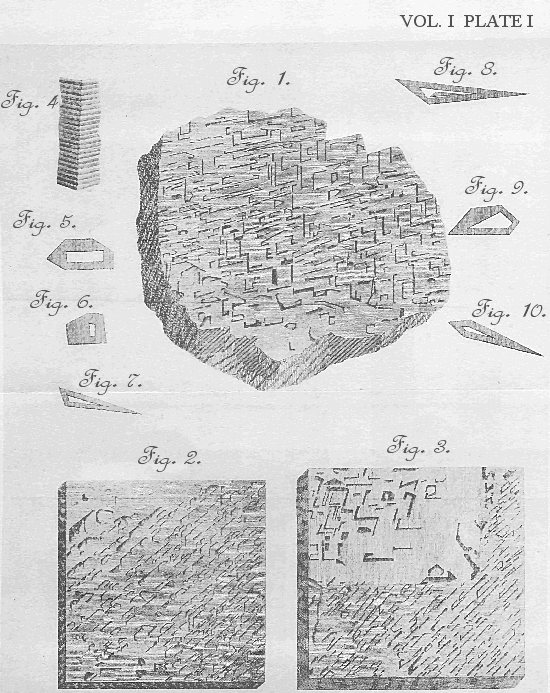 VOL. I PLATE I
Fig. 1.
Fig. 8.
Fig. 4.
Fig. 9.
Fig. 5.
Fig. 6.
Fig. 10.
Fig. 7.
Fig. 2.
Fig. 3.